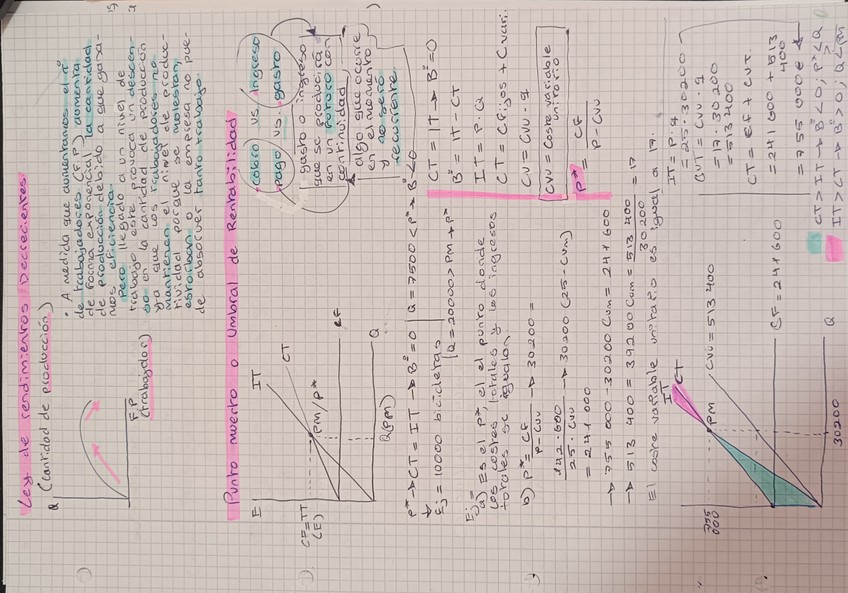 Ley de rendimientos Decrecientes
Q (cantidad de producción)
F.P
(trabajador)
• A medida que aumentamos el nº
de trabajadores (F.P.) aumenta
de forma exponencial la cantidad
de producción debido a que gana-
mos eficiencia.
Pero llegado a un nivel de
trabajo este provoca un descen-
so en la cantidad de producción
ya que los trabajadores no
mantienen el nivel de produc-
tividad porque se molestan,
estorban o la empresa no pue-
de absorver tanto trabajo.
Punto muerto o Umbral de Rentabilidad
IT
CT
PM/P*
CF
Q
Q(PM)
(E)
cobro vs. ingreso
pago vs. gasto
gasto o ingreso
que se producirá
en un futuro con
continuidad
algo que ocurre
en el momento
y no será
recurrente
P* → CT = IT → Bº = 0 | Q = 7500 < P* → Bº < 0
Ej = 10000 bicicletas
Q = 20000 > PM + P*
CT = IT → Bº = 0
Bº = IT - CT
IT = P · Q
CT = CFijos + Cvari.
CV = CVU · q
CVU = Coste variable
unitario
P* = CF / P - CVU
Ej =
a) Es el P*, el el punto donde
los costes totales y los ingresos
totales se igualan.
b) P* = CF / P - CVU → 30200 =
25 - CVU → 30200 (25 - CVU)
= 241 000
→ 755 000 - 30200 CVU = 241 600
→ 513 400 = 513 400 / 30 200 = 17
El coste variable unitario es igual a 17.
IT = P · q
= 25 · 30200
CVT = CVU · q
= 17 · 30 200
= 513 400
CT = CF + CVT.
= 241 600 + 513
400
= 755 000 €
IT
CT
PM
CVU = 513 400
CF = 241 600
Q
30200
CT > IT → Bº < 0; P* < Q
IT > CT → Bº > 0;